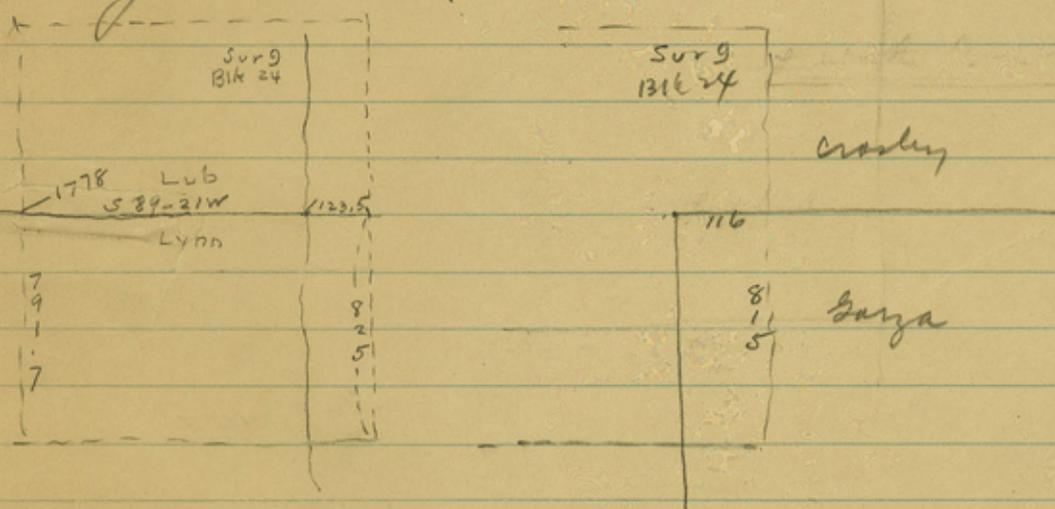 Sur 9
Blk 24
1778 Lub
S 89-21W
123.5
Lynn
7
9
1
.
7
8
2
5
Sur 9
Blk 24
Crosby
116
8
1
5
Garza